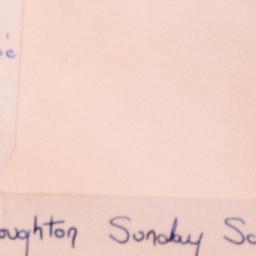 oughton Sunday Sc